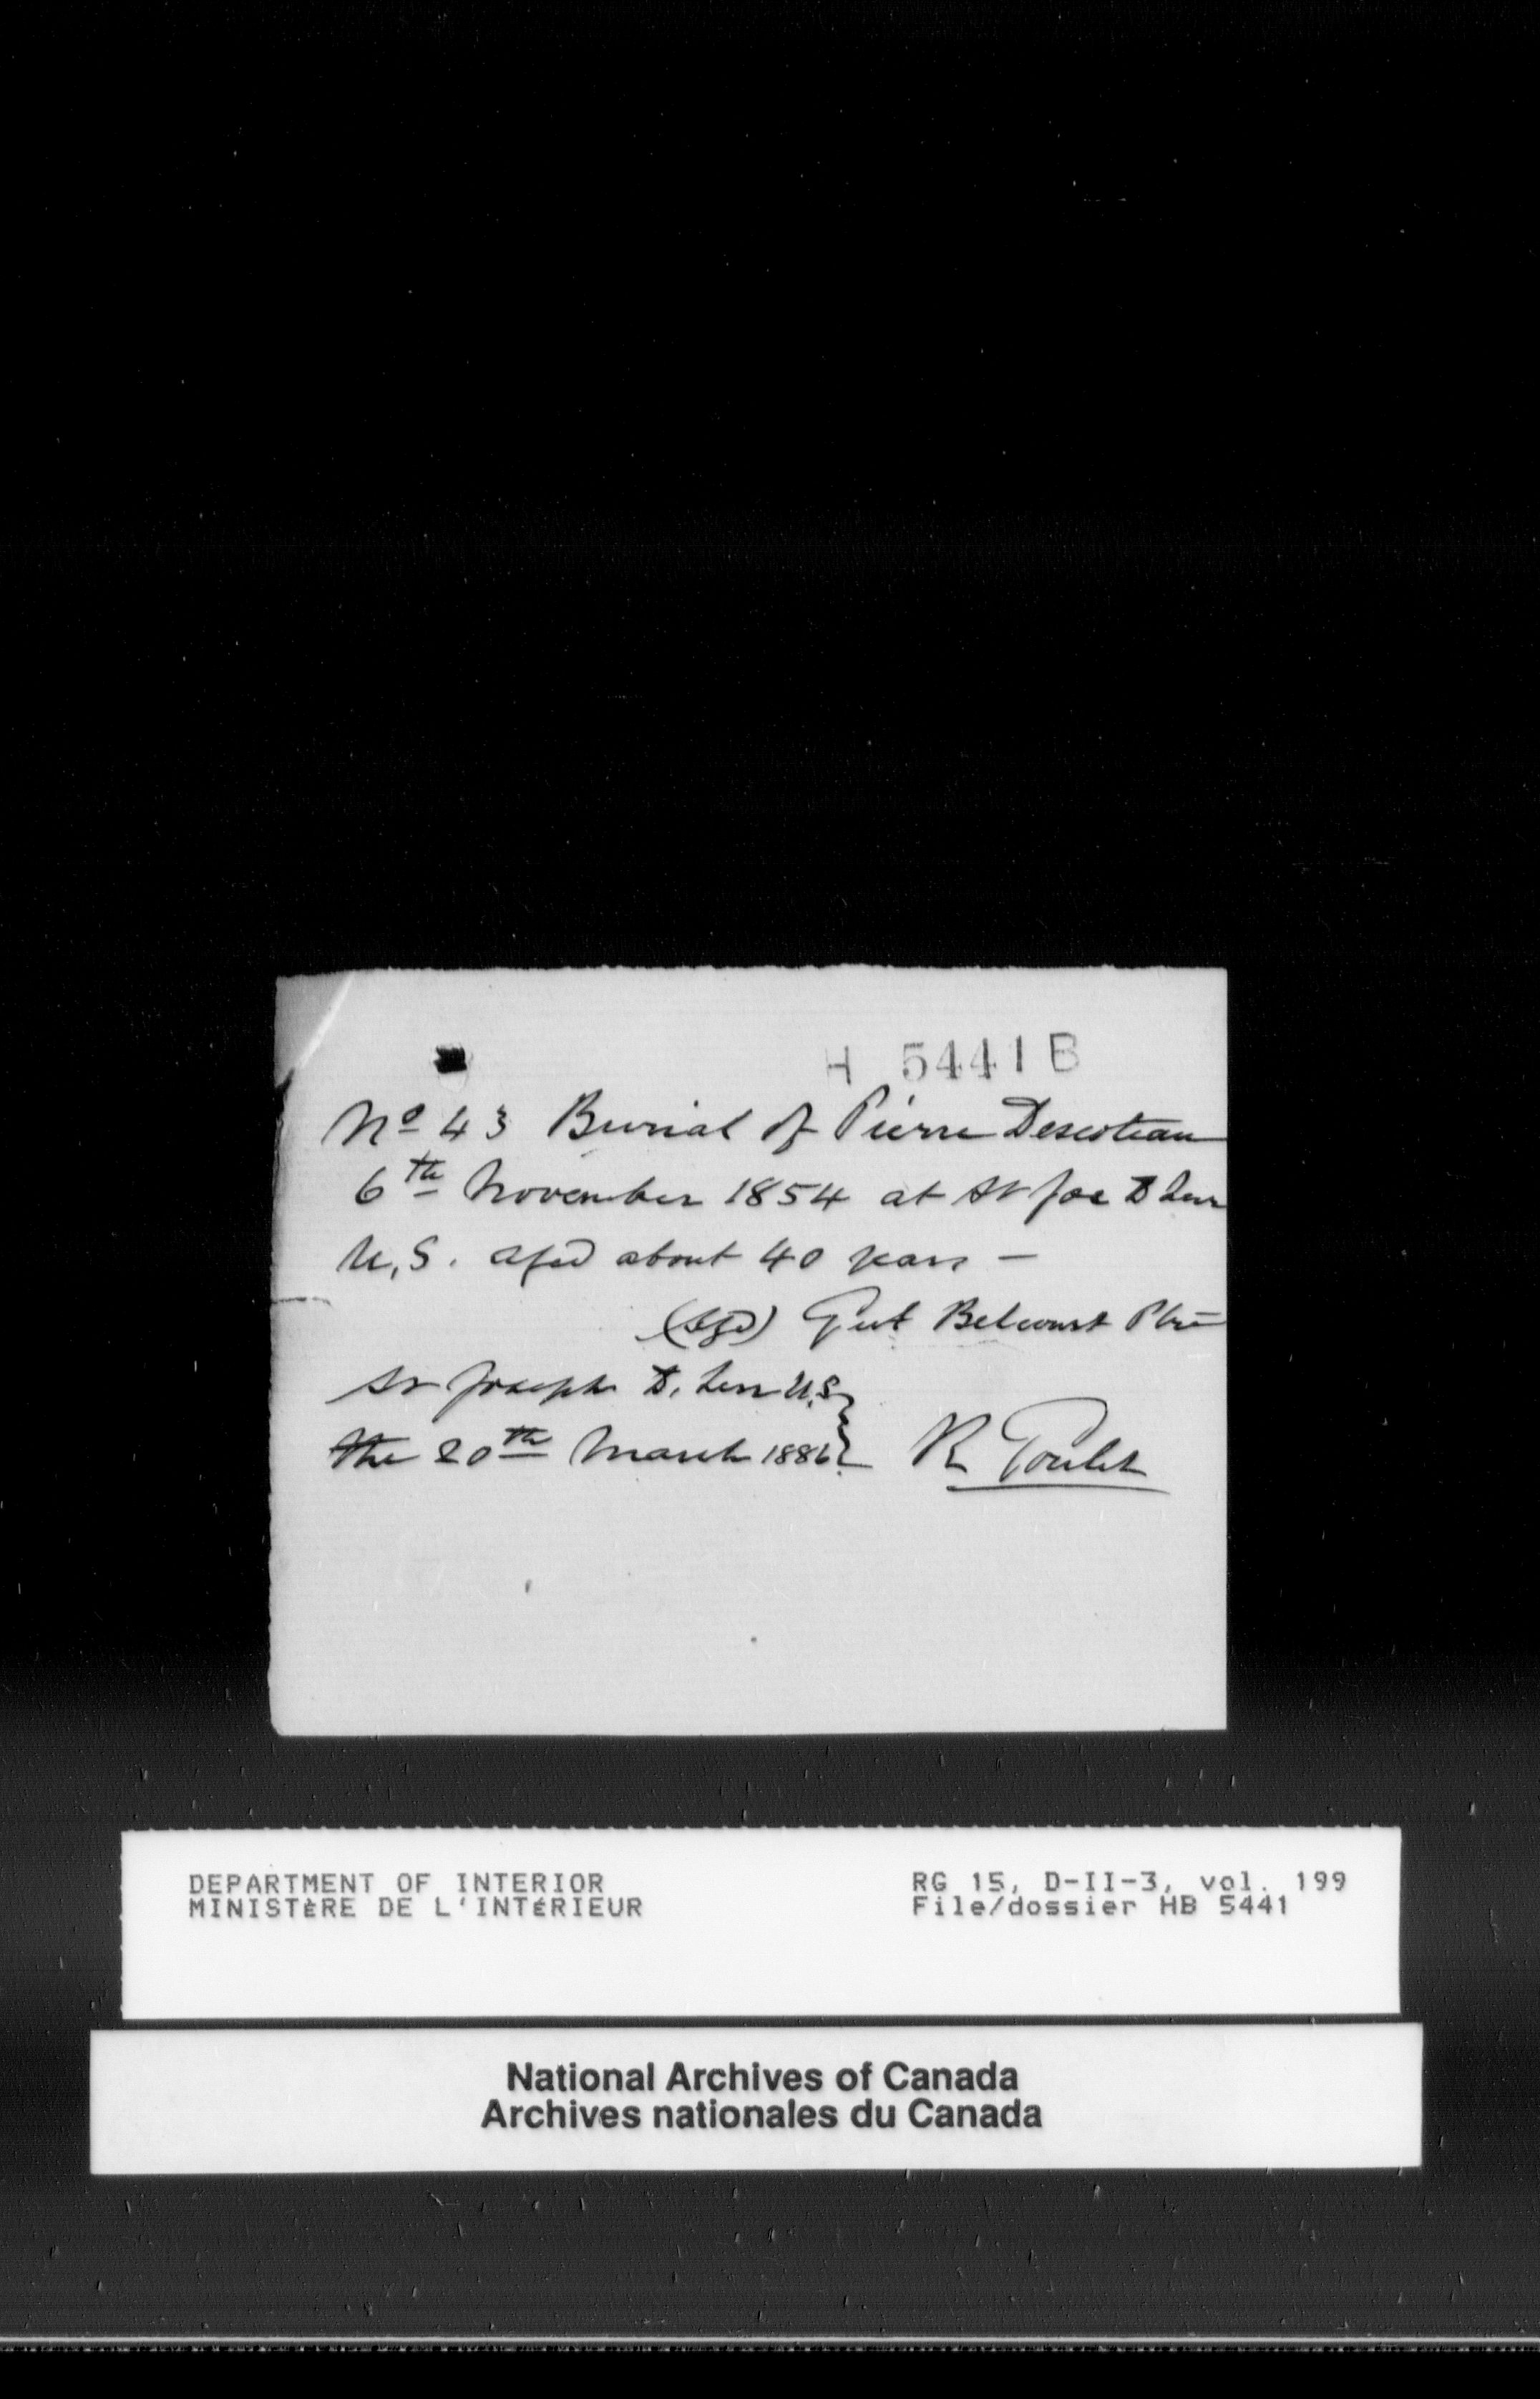 H 5441 B
No 43 Burial of Pierre Descoteau
6th November 1854 at St Joe D Terr
U.S. aged about 40 years —
(Sgd) Belcourt Ptre
St Joseph D. Terr U.S.
the 20th March 1886 R Goulet
DEPARTMENT OF INTERIOR
MINISTÈRE DE L'INTÉRIEUR
RG 15, D-II-3, vol. 199
File/dossier HB 5441
National Archives of Canada
Archives nationales du Canada